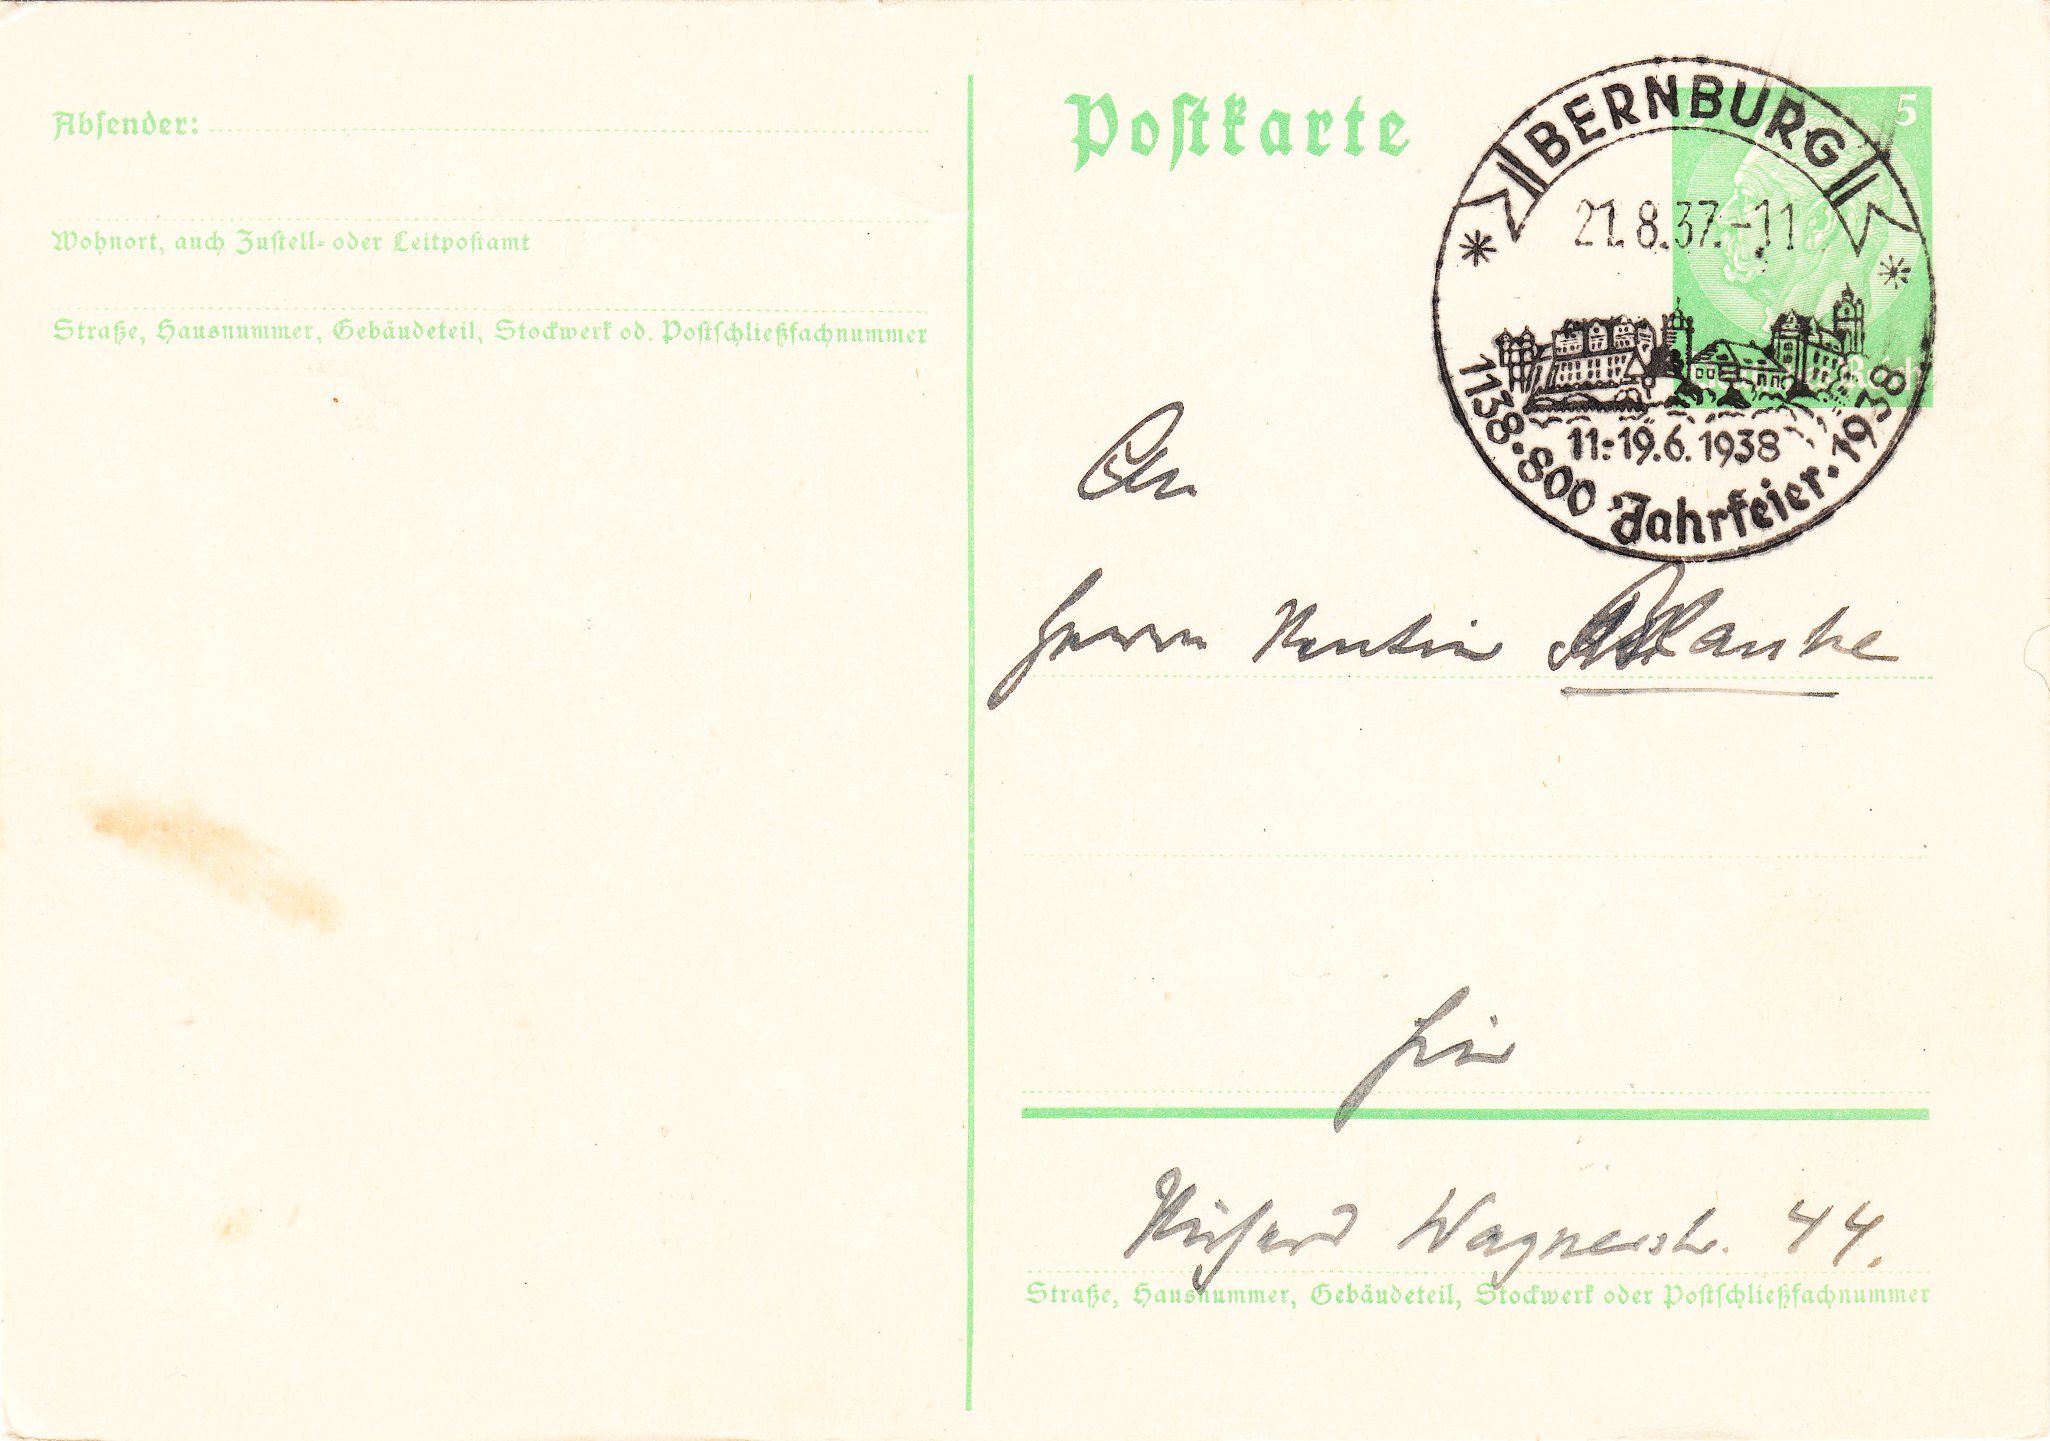 Absender:
Wohnort, auch Zustell- oder Leitpostamt
Straße, Hausnummer, Gebäudeteil, Stockwerk od. Postschließfachnummer
Postkarte
5
BERNBURG
21.8.37.-11
11.-19.6.1938
1138·800 Jahrfeier·1938
An
Herrn Ranke
hier
Richard Wagnerstr. 44.
Straße, Hausnummer, Gebäudeteil, Stockwerk oder Postschließfachnummer